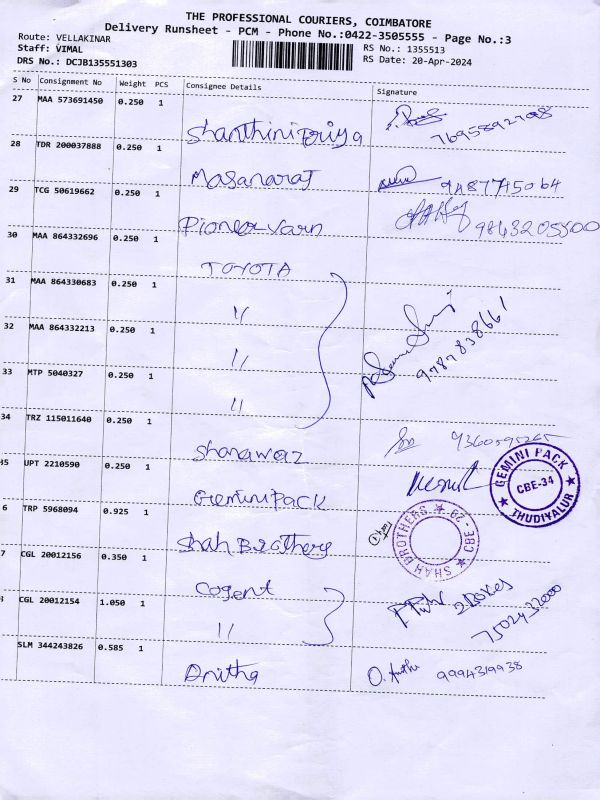 THE PROFESSIONAL COURIERS, COIMBATORE
Delivery Runsheet - PCM - Phone No.:0422-3505555 - Page No.:3
Route: VELLAKINAR
RS No.: 1355513
Staff: VIMAL
RS Date: 20-Apr-2024
DRS No.: DCJB135551303
S No Consignment No Weight PCS Consignee Details Signature
27 MAA 573691450 0.250 1 Shanthini Priya
28 TDR 200037888 0.250 1 Masanaraj 9487745064
29 TCG 50619662 0.250 1 Pioneer Yarn 9843205500
30 MAA 864332696 0.250 1 TOYOTA
31 MAA 864330683 0.250 1 "
32 MAA 864332213 0.250 1 " 9787838661
33 MTP 5040327 0.250 1 "
34 TRZ 115011640 0.250 1 Shanawaz
35 UPT 2210590 0.250 1 Gemini Pack
GEMINI PACK
CBE-34
THUDIYALUR
6 TRP 5968094 0.925 1 Shah Brothers
SHAH BROTHERS
CBE - 29
7 CGL 20012156 0.350 1 Cogent
CGL 20012154 1.050 1 " 2 Boxes
7502432000
SLM 344243826 0.585 1 Anitha O. Anitha 9994319938